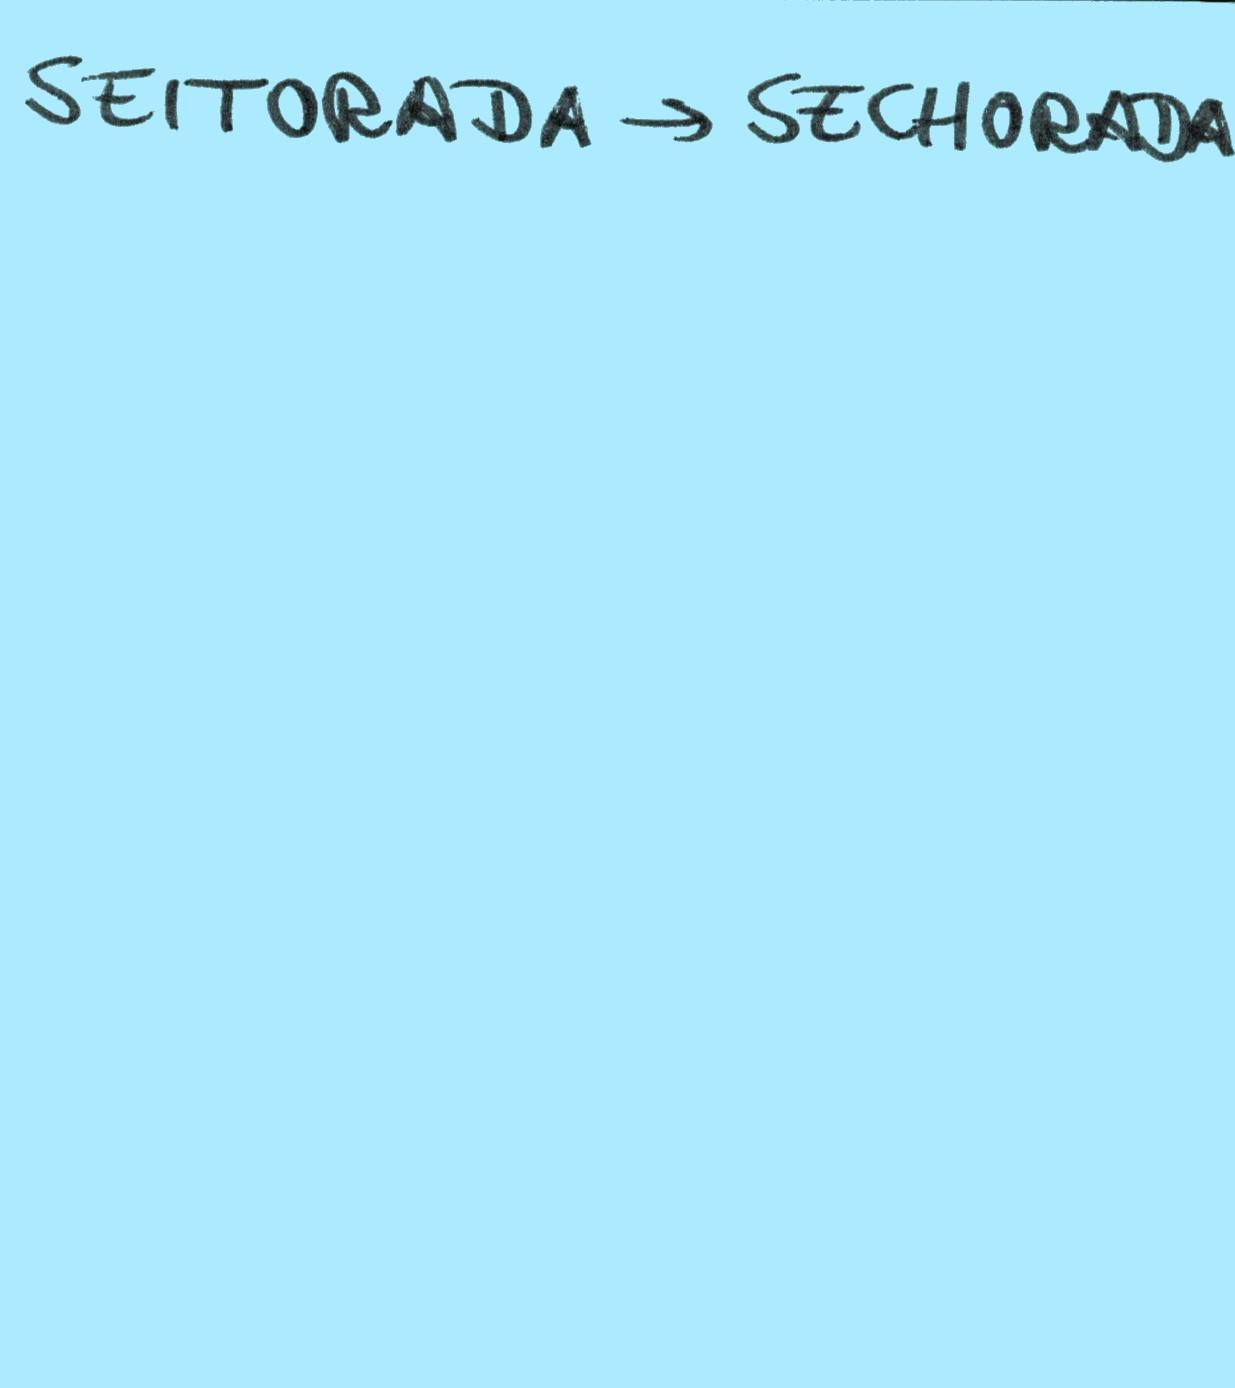 SEITORADA → SECHORADA